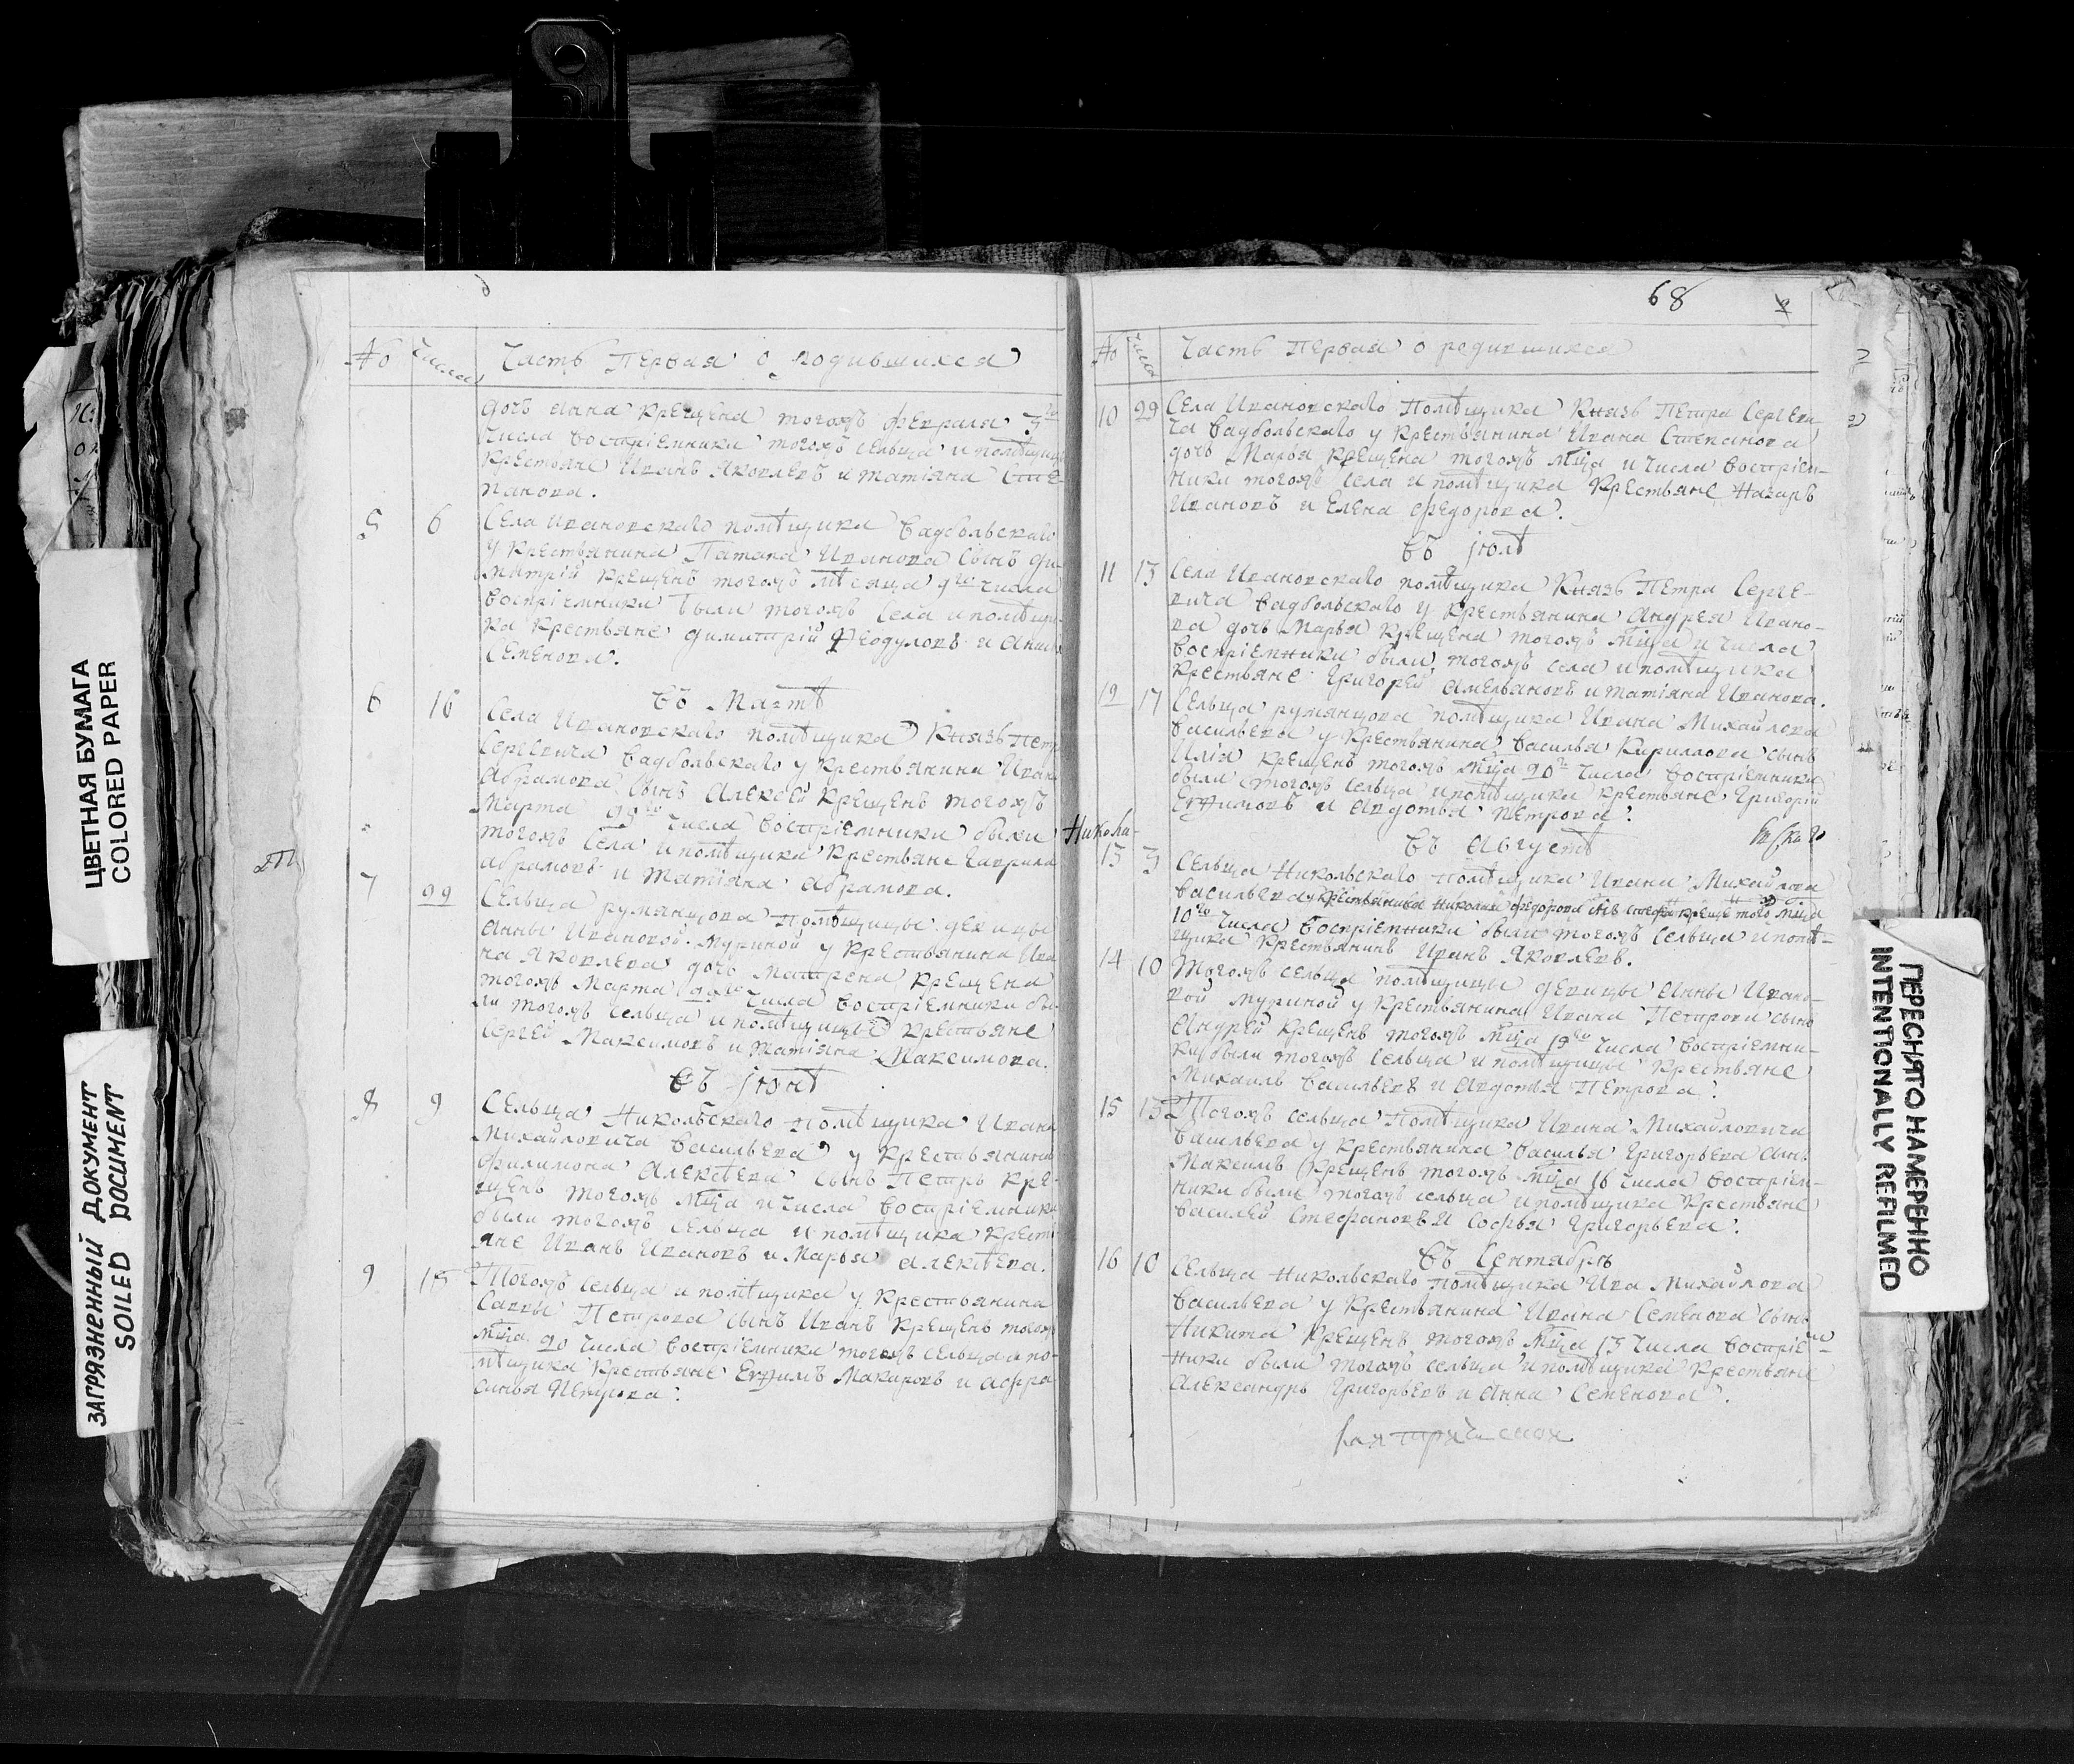 68
№ числа Часть Первая о родившихся
дочь Анна крещена тогожъ февраля 3го
числа восприемники тогожъ сельца и помѣщицы
крестьяне Иванъ Яковлевъ и Татіяна Сте-
панова.
5 6 Села Ивановскаго помѣщика Вадбольскаго
у крестьянина Ивановa сынъ Ди-
митрій крещенъ тогожъ мѣсяца 9го числа
восприемники были тогожъ села и помѣщи-
ка крестьяне Димитрій Феодуловъ и
Семенова.
Въ Мартѣ
6 16 Села Ивановскаго помѣщика Князь Петра
Сергѣевича Вадбольскаго у крестьянина Ивана
Абрамова сынъ Алексѣй крещенъ тогожъ
Марта числа восприемники были
тогожъ села и помѣщика крестьяне Гаврила
Абрамовъ и Татіяна Абрамова.
7 22 Сельца румянцова помѣщицы девицы
Анны Ивановой Муриной у крестьянина Ива
на Яковлева дочь Матрена крещена
тогожъ Марта числа восприемники бы-
ли тогожъ сельца и помѣщицы крестьяне
Сергей Максимовъ и Татіяна Максимова.
Въ Іюнѣ
8 9 Сельца Никольскаго помѣщика Ивана
Михайловича Васильева у крестьянина
Филимона Алексѣева сынъ Петръ кре-
щенъ тогожъ мца и числа восприемники
были тогожъ сельца и помѣщика кресть
яне Иванъ Ивановъ и Марья Алексѣева.
9 15 Тогожъ сельца и помѣщика у крестьянина
Саввы Петрова сынъ Иванъ крещенъ тогожъ
мца 20 числа восприемники тогожъ сельца и по-
мѣщика крестьяне Ефимъ Макаровъ и Афро
синья Петрова.
№ числа Часть Первая о родившихся
10 29 Села Ивановскаго помѣщика Князь Петра Сергеви-
ча Вадбольскаго у крестьянина Ивана Степанова
дочь Марья крещена тогожъ мца и числа восприем-
ники тогожъ села и помѣщика крестьяне Назаръ
Ивановъ и Елена Федорова.
Въ Іюлѣ
11 13 Села Ивановскаго помѣщика Князь Петра Серге-
вича Вадбольскаго у крестьянина Андрея Ивано-
ва дочь Марья крещена тогожъ мца и числа
восприемники были тогожъ села и помѣщика
крестьяне Григорей Амельяновъ и Татіяна Иванова.
12 17 Сельца румянцова помѣщика Ивана Михайлова
Васильева у крестьянина Василья Кирилова сынъ
Илія крещенъ тогожъ мца 20го числа восприемники
были тогожъ сельца и помѣщика крестьяне Григорій
Ефимовъ и Авдотья Петрова.
Николи-
Въ Августѣ
13 3 Сельца Никольскаго помѣщика Ивана Михайлова
Васильева у крестьянина Николая Федорова сынъ Стефанъ крещенъ того мца
10го числа восприемники были тогожъ сельца и помѣ-
щика крестьянинъ Иванъ Яковлевъ.
14 10 Тогожъ сельца помѣщицы девицы Анны Ивано-
вой Муриной у крестьянина Ивана Петрова сынъ
Андрей крещенъ тогожъ мца 19го числа восприемни-
ки были тогожъ сельца и помѣщицы крестьяне
Михаилъ Васильевъ и Авдотья Петрова.
15 13 Тогожъ сельца помѣщика Ивана Михайловича
Васильева у крестьянина Василья Григорьева сынъ
Максимъ крещенъ тогожъ мца 16 числа восприем-
ники были тогожъ сельца и помѣщика крестьяне
Василей Стефановъ и Софья Григорьева.
Въ Сентябрѣ
16 10 Сельца Никольскаго помѣщика Ива Михайлова
Васильева у крестьянина Ивана Семенова сынъ
Никита крещенъ тогожъ мца 13 числа восприем-
ники были тогожъ сельца и помѣщика крестьяне
Александръ Григорьевъ и Анна Семенова.
ЦВЕТНАЯ БУМАГА
COLORED PAPER
ЗАГРЯЗНЕННЫЙ ДОКУМЕНТ
SOILED DOCUMENT
ПЕРЕСНЯТО НАМЕРЕННО
INTENTIONALLY REFILMED